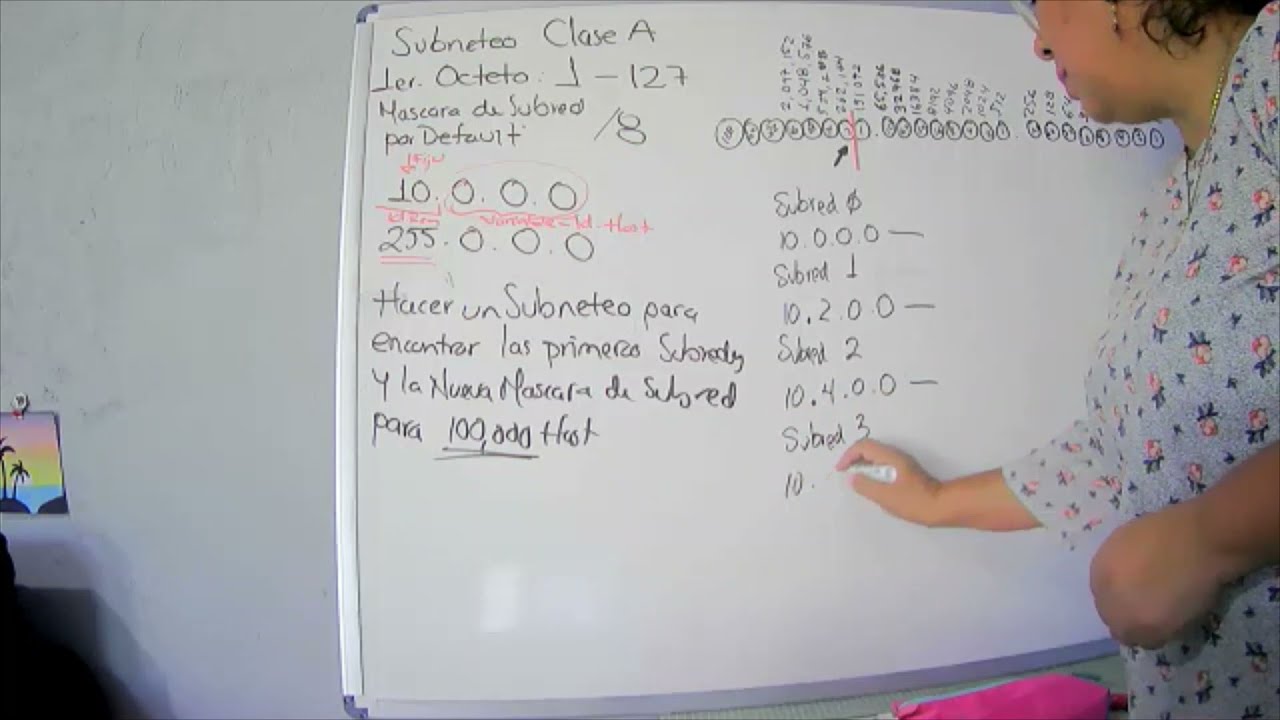 Subneteo Clase A
1er. Octeto: 1 - 127
Mascara de Subred
por Default /8
Fijo
10.0.0.0
Variable = Id. Host
255.0.0.0
Hacer un Subneteo para
encontrar las primeras Subredes
Y la Nueva Mascara de Subred
para 100,000 Host
2,097,152
1,048,576
262,144
131,072
65,536
32768
16384
8192
4096
2048
1024
512
256
128
Subred 0
10.0.0.0 —
Subred 1
10.2.0.0 —
Subred 2
10.4.0.0 —
Subred 3
10.